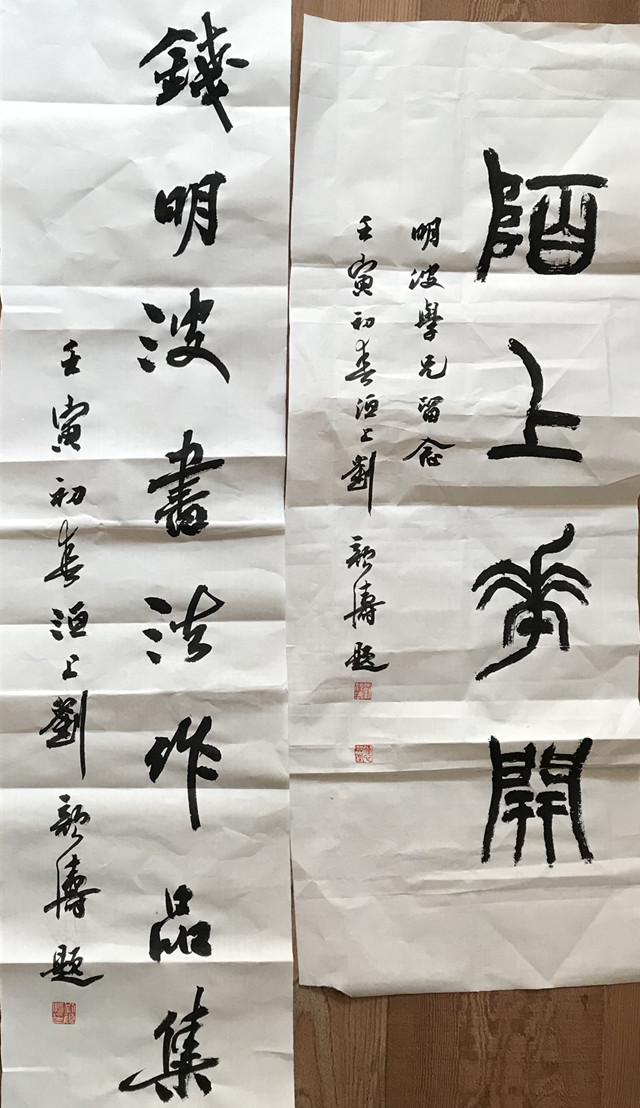 陌上華開
明波學兄留念
壬寅初春洹上劉顏濤題
錢明波書法作品集
壬寅初春洹上劉顏濤題